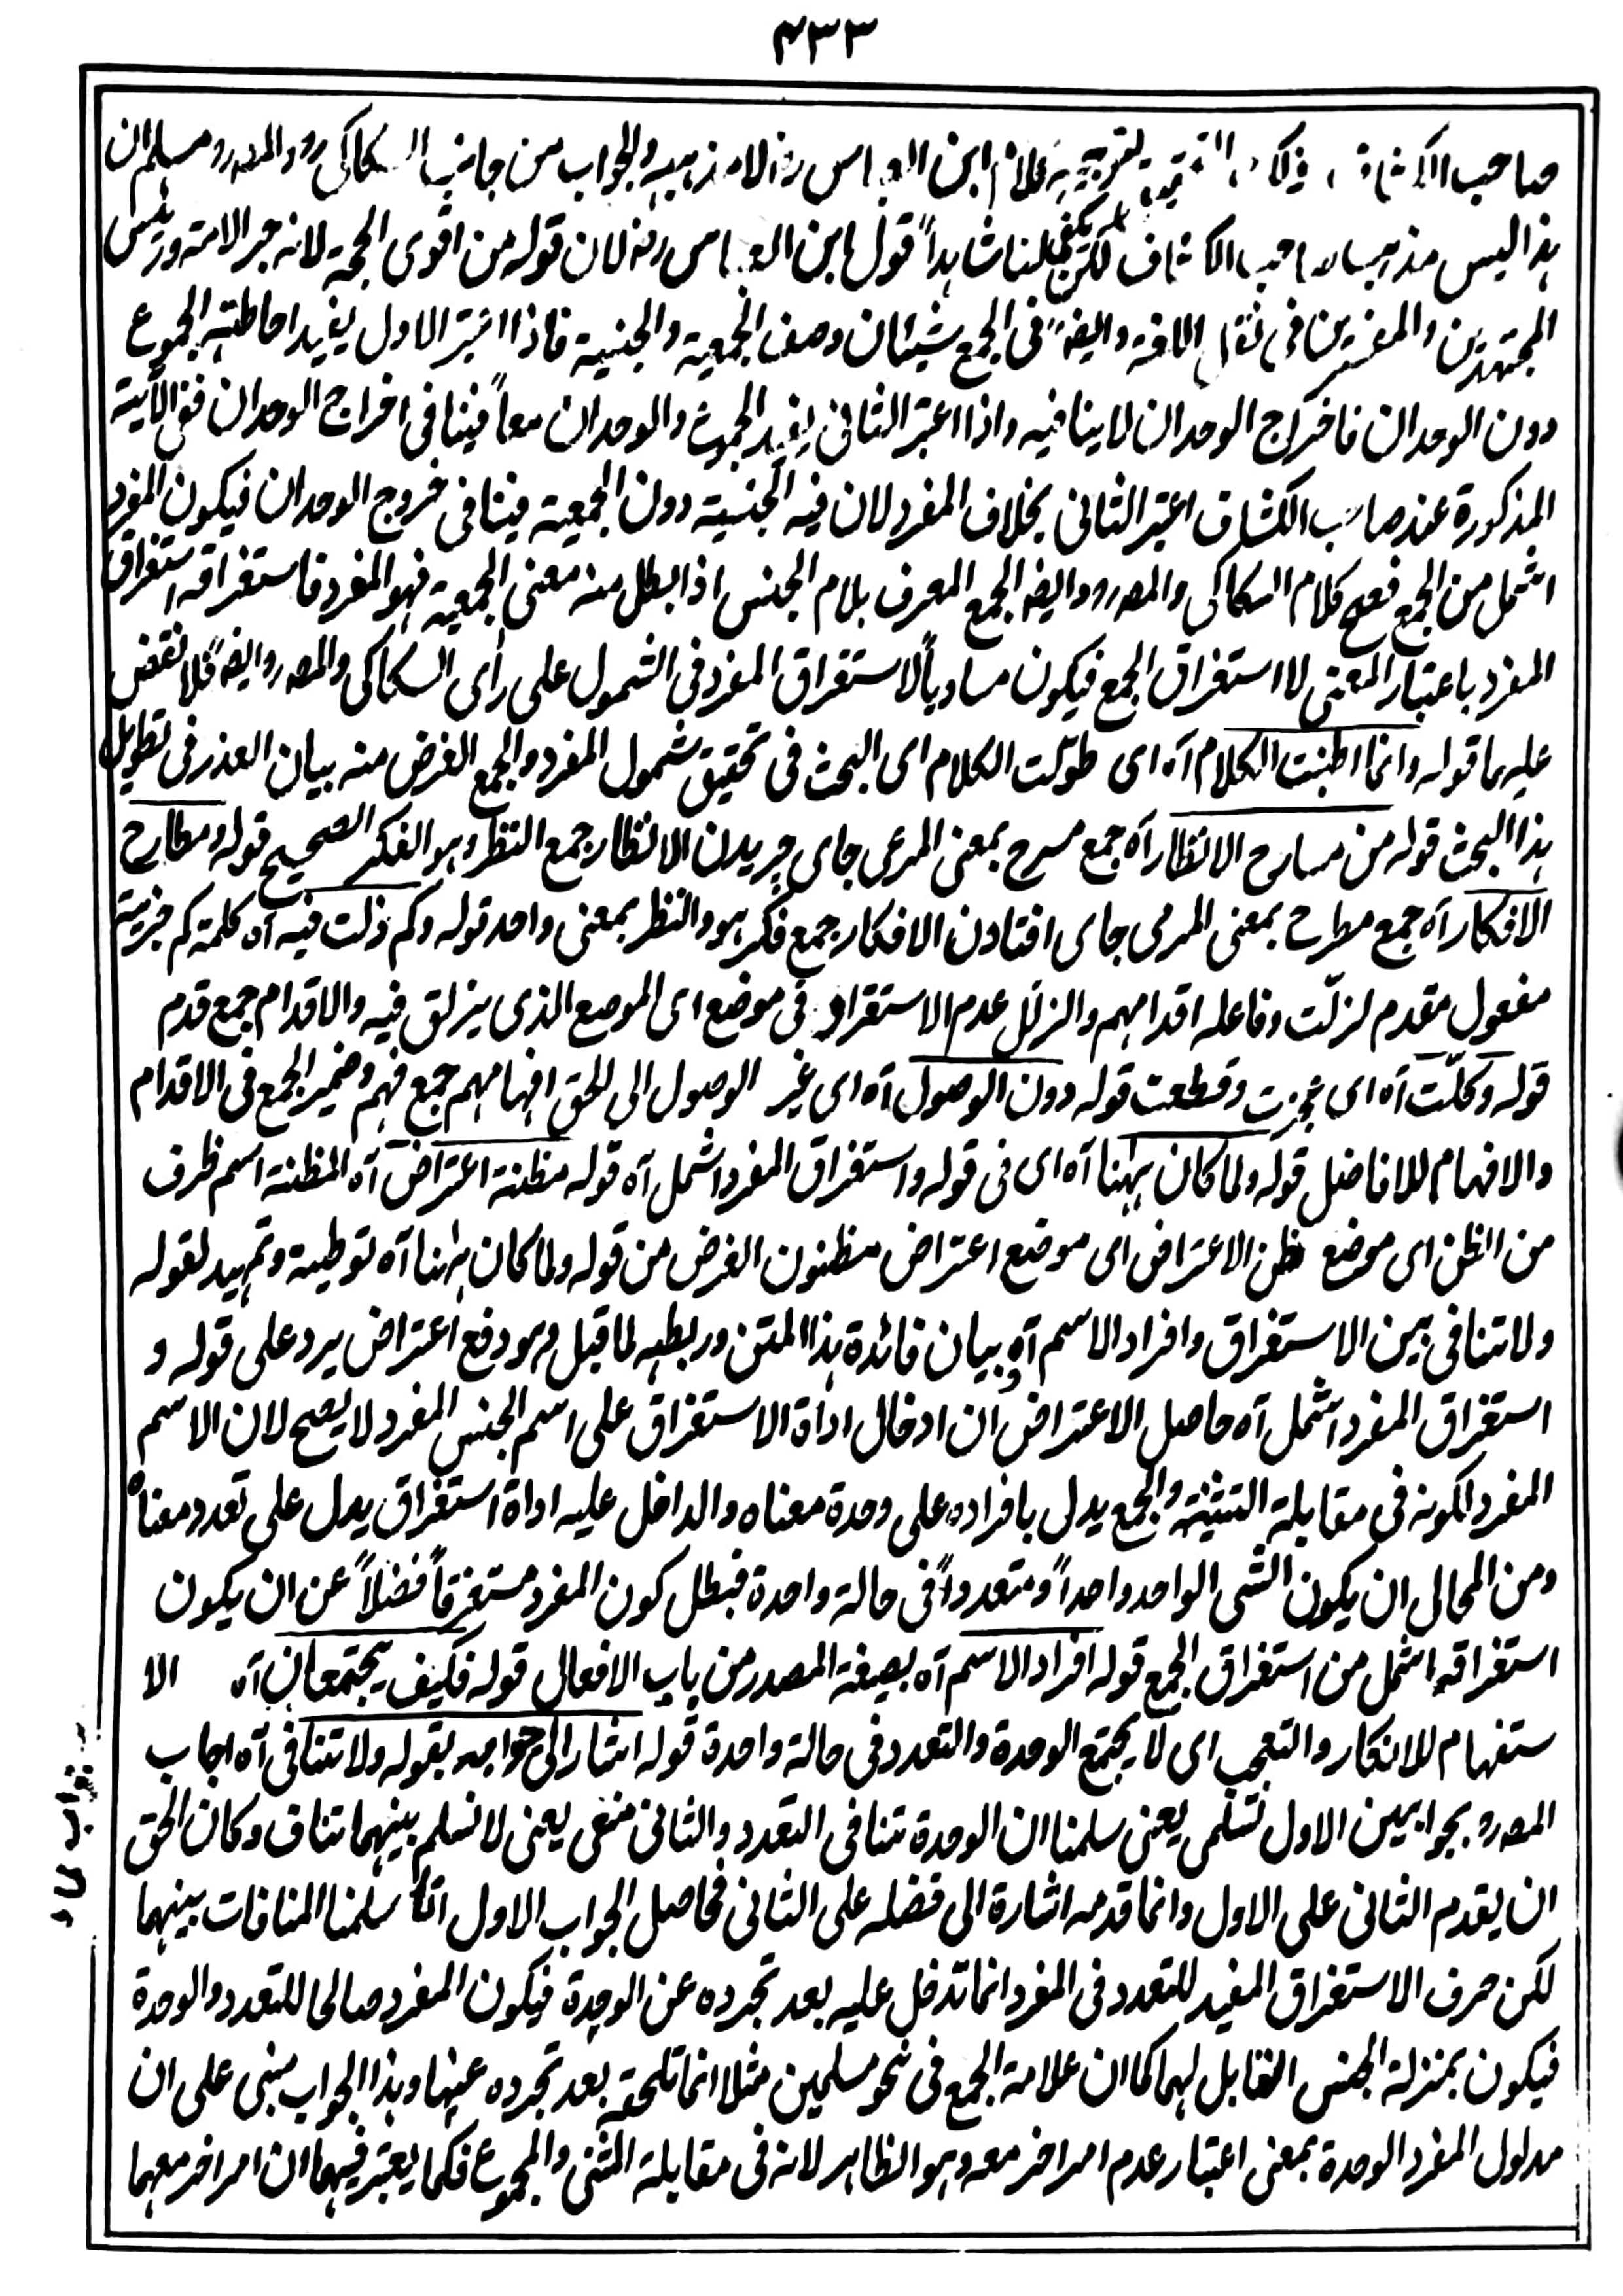 ۴۳۳
صاحب الکشاف بتوجیه کلام ابن العباس رض لا مذهبه والجواب من جانب السکاکی رو المصرو مسلم ان
هذا لیس مذهب صاحب الکشاف لکن یکفی لنا شاهداً قول ابن العباس رض لان قوله من اقوی الحجة لانه حبر الامة ورئیس
المجتهدین والمفسرین فی نقل اللغة وایضً فی الجمع شیئان وصف الجمعیة والجنسیة فاذا اعتبر الاول یفید احاطته الجموع
دون الوحدان فاخراج الوحدان لاینافیه واذا اعتبر الثانی یفید الجموع والوحدان معاً فینافی اخراج الوحدان ففی الآیة
المذکورة عند صاحب الکشاف اعتبر الثانی بخلاف المفرد لان فیه الجنسیة دون الجمعیة فینافی خروج الوحدان فیکون المفرد
اشمل من الجمع فصح کلام السکاکی والمصرو وایضا الجمع المعرف بلام الجنس اذا بطل منه معنی الجمعیة فهو المفرد فاستغراقه استغراق
المفرد باعتبار المعنی لا استغراق الجمع فیکون مساویاً لاستغراق المفرد فی الشمول علی رأی السکاکی والمصرو ایضً فلا نقض
علیهما قوله وانما اطنبت الکلام آه ای طوّلت الکلام ای البحث فی تحقیق شمول المفرد والجمع الغرض منه بیان العذر فی تطویل
هذا البحث قوله من مسارح الانظار آه جمع مسرح بمعنی المرعی جای چریدن الانظار جمع النظر وهو الفکر الصحیح قوله ومطارح
الافکار آه جمع مطرح بمعنی المرمی جای افتادن الافکار جمع فکر هو والنظر بمعنی واحد قوله وکم زلت فیه آه کلمة کم خبریة
مفعول مقدم لزلّت وفاعله اقدامهم والزلل عدم الاستقرار فی موضع ای الموضع الذی یزلق فیه والاقدام جمع قدم
قوله وکلّت آه ای عجزت وقطعت قوله دون الوصول آه ای غیر الوصول الی الحق افهامهم جمع فهم وضمیر الجمع فی الاقدام
والافهام للافاضل قوله ولما کان ههنا آه ای فی قوله واستغراق المفرد اشمل آه قوله مظنة اعتراض آه المظنة اسم ظرف
من الظن ای موضع ظن الاعتراض ای موضع اعتراض مظنون الغرض من قوله ولما کان ههنا آه توطیة وتمهید لقوله
ولا تنافی بین الاستغراق وافراد الاسم آه و بیان فائدة هذا المتن وربطه لما قبل وهو دفع اعتراض یرد علی قوله و
استغراق المفرد اشمل آه حاصل الاعتراض ان ادخال اداة الاستغراق علی اسم الجنس المفرد لا یصح لان الاسم
المفرد لکونه فی مقابلة التثنیة والجمع یدل بافراده علی وحدة معناه والداخل علیه اداة استغراق یدل علی تعدد معناه
ومن المحال ان یکون الشی الواحد واحداً ومتعدداً فی حالة واحدة فبطل کون المفرد مستغرقاً فضلاً عن ان یکون
استغراقه اشمل من استغراق الجمع قوله افراد الاسم آه بصیغة المصدر من باب الافعال قوله فکیف یجتمعان آه الا
ستفهام للانکار والتعجب ای لا یجتمع الوحدة والتعدد فی حالة واحدة قوله اشار الی جوابه بقوله ولا تنافی آه اجاب
المصرو بجوابین الاول تسلمی یعنی سلمنا ان الوحدة تنافی التعدد والثانی منعی یعنی لا نسلم بینهما تناف وکان الحق
ان یقدم الثانی علی الاول وانما قدمه اشارة الی فضله علی الثانی فحاصل الجواب الاول انا سلمنا المنافات بینهما
لکن حرف الاستغراق المفید للتعدد فی المفرد انما تدخل علیه بعد تجرده عن الوحدة فیکون المفرد صالحا للتعدد والوحدة
فیکون بمنزلة الجنس القابل لهما کما ان علامة الجمع فی نحو مسلمین مثلا انما تلحقه بعد تجرده عنها وهذا الجواب مبنی علی ان
مدلول المفرد الوحدة بمعنی اعتبار عدم امر اخر معه وهو الظاهر لانه فی مقابلة المثنی والمجموع فکما یعتبر فیهما ان امر اخر معهما